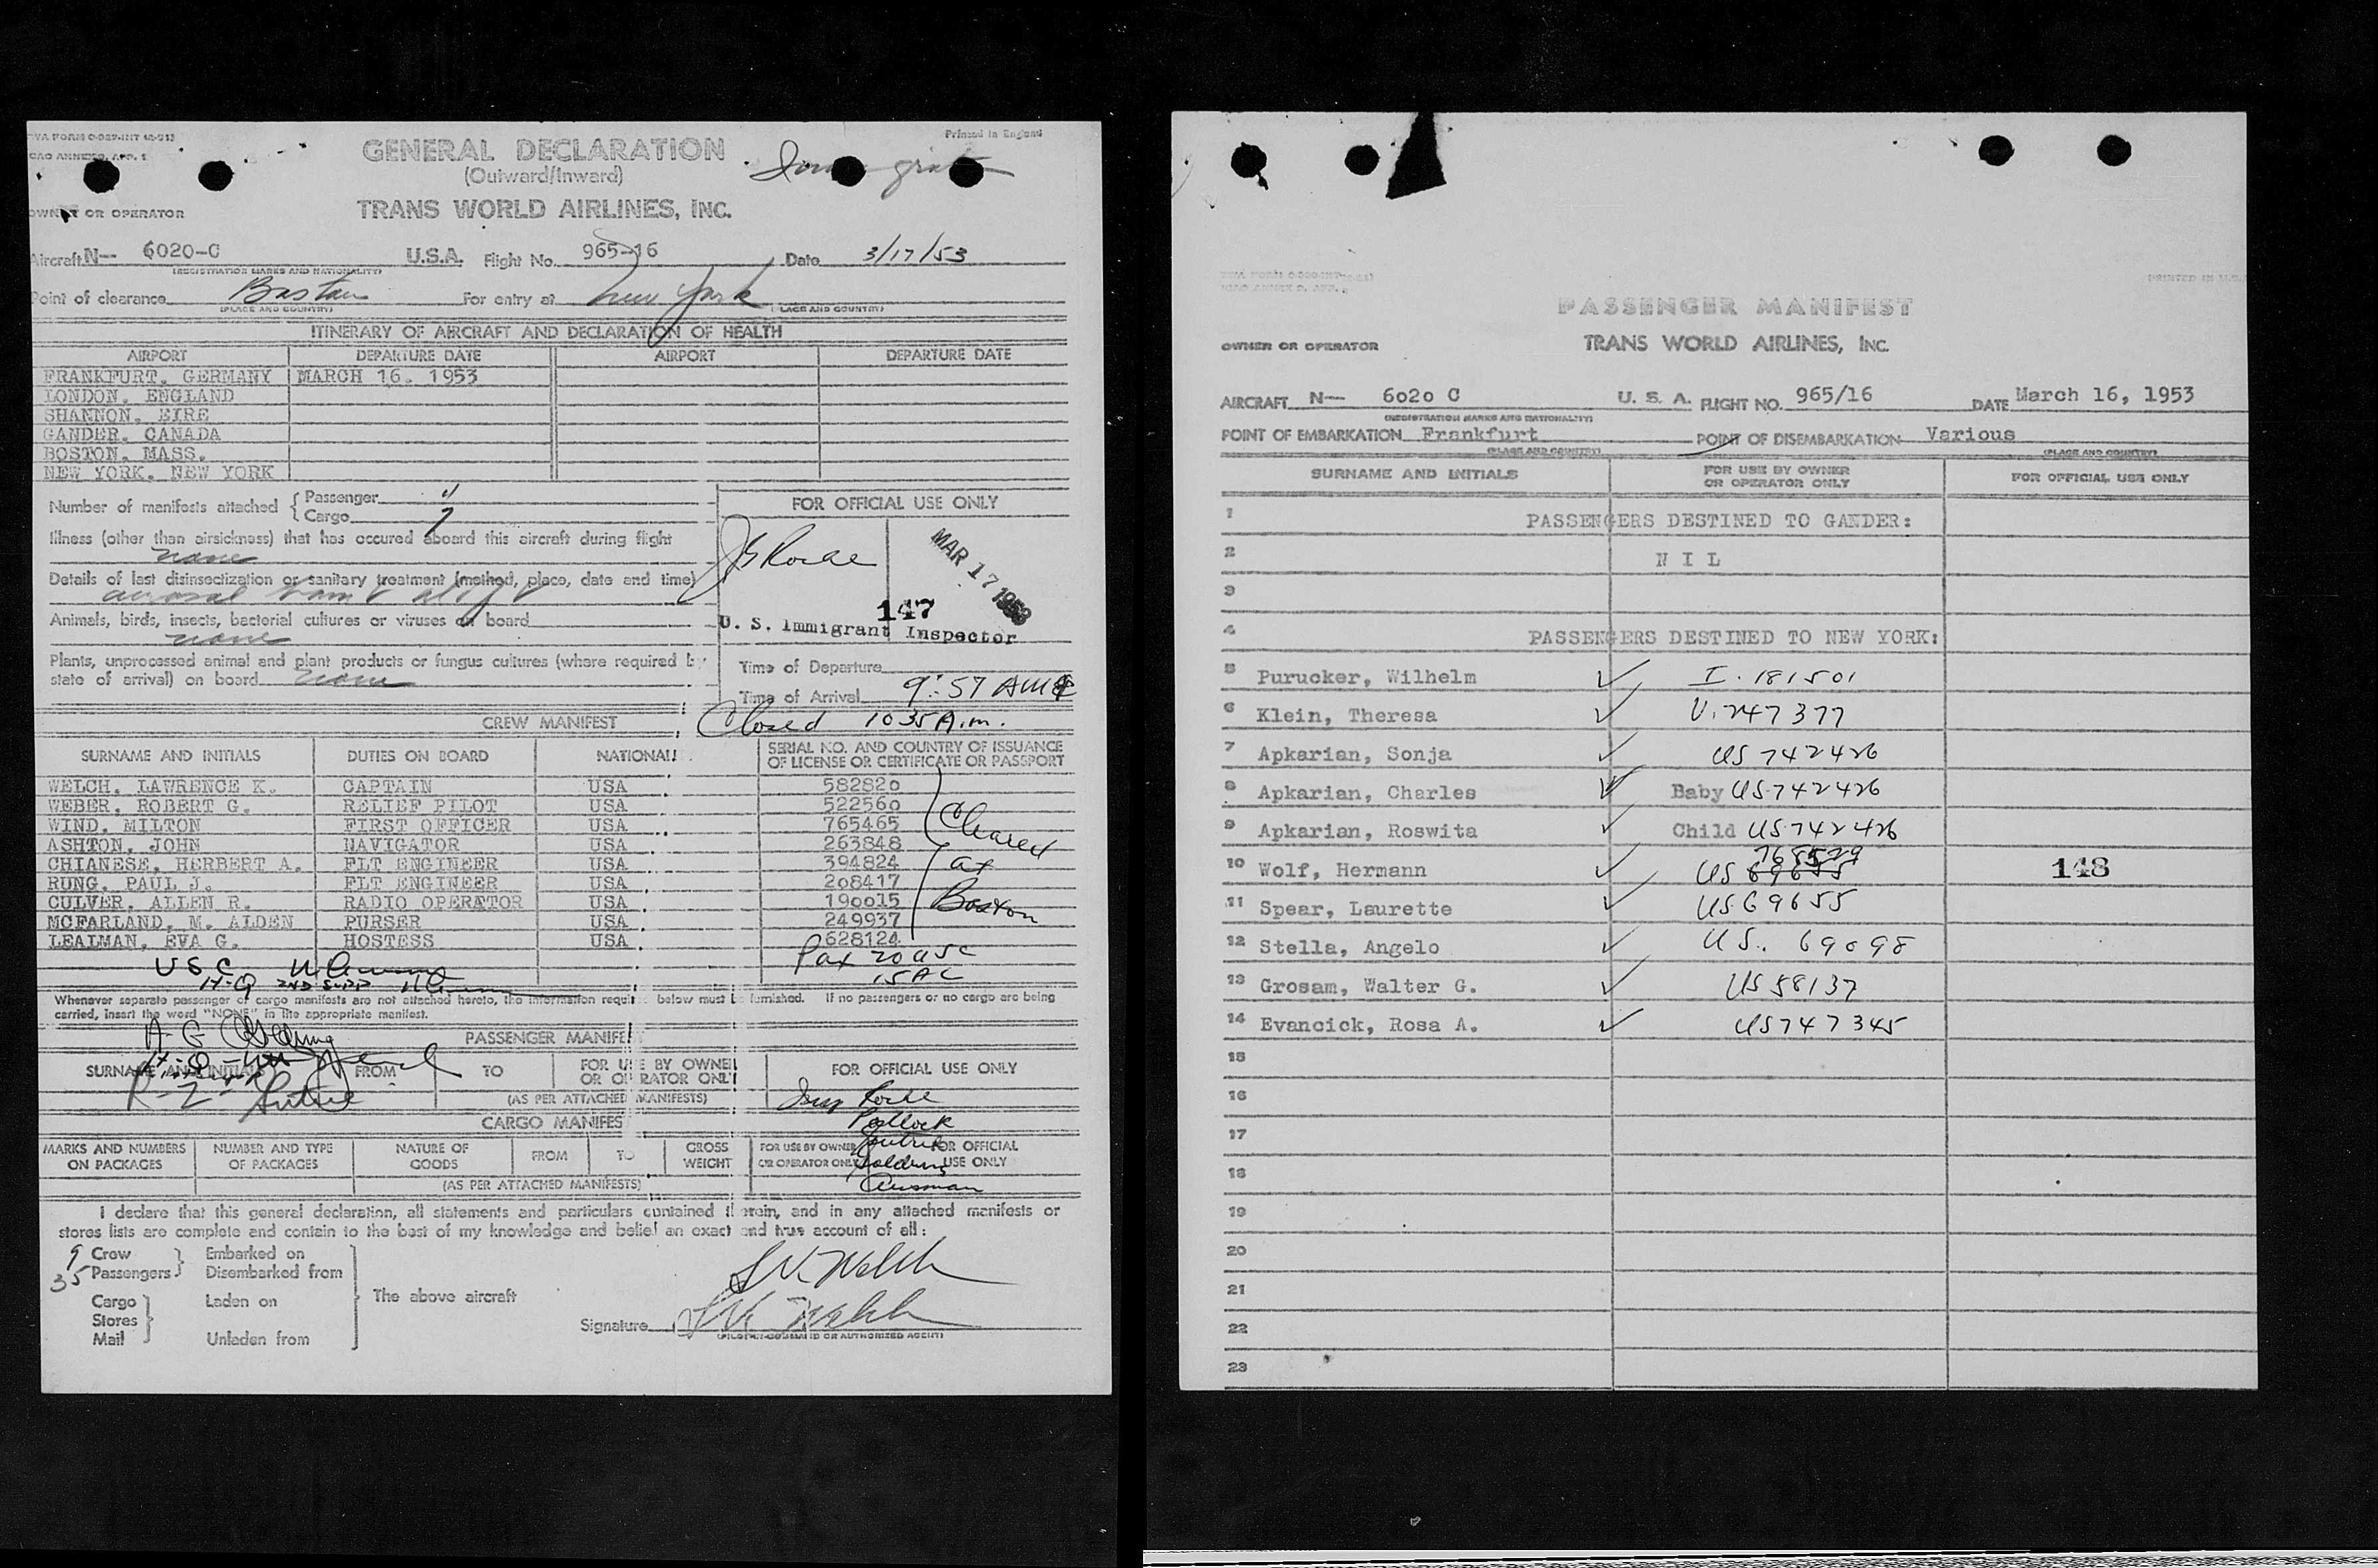 TWA FORM O-027-INT
ICAO ANNEX 9, APP. 1
Printed in England
GENERAL DECLARATION
(Outward/Inward)
OWNER OR OPERATOR
TRANS WORLD AIRLINES, INC.
Aircraft N— 6020-C U.S.A. Flight No. 965-16 Date 3/17/53
(REGISTRATION MARKS AND NATIONALITY)
Point of clearance Boston For entry at New York
(PLACE AND COUNTRY) (PLACE AND COUNTRY)
ITINERARY OF AIRCRAFT AND DECLARATION OF HEALTH
AIRPORT DEPARTURE DATE AIRPORT DEPARTURE DATE
FRANKFURT. GERMANY MARCH 16. 1953
LONDON. ENGLAND
SHANNON. EIRE
GANDER. CANADA
BOSTON. MASS.
NEW YORK. NEW YORK
Number of manifests attached { Passenger
Cargo
FOR OFFICIAL USE ONLY
Illness (other than airsickness) that has occured aboard this aircraft during flight
none
Details of last disinsectization or sanitary treatment (method, place, date and time)
MAR 17 1953
147
Animals, birds, insects, bacterial cultures or viruses on board
none
U. S. Immigrant Inspector
Plants, unprocessed animal and plant products or fungus cultures (where required by
state of arrival) on board none
Time of Departure
Time of Arrival 9:57 AM
Closed 1035 A.m.
CREW MANIFEST
SURNAME AND INITIALS DUTIES ON BOARD NATIONALI SERIAL NO. AND COUNTRY OF ISSUANCE
OF LICENSE OR CERTIFICATE OR PASSPORT
WELCH. LAWRENCE K. CAPTAIN USA 582820
WEBER. ROBERT G. RELIEF PILOT USA 522560
WIND. MILTON FIRST OFFICER USA 765465
ASHTON. JOHN NAVIGATOR USA 263848
CHIANESE. HERBERT A. FLT ENGINEER USA 394824
RUNG. PAUL J. FLT ENGINEER USA 208417
CULVER. ALLEN R. RADIO OPERATOR USA 190015
MCFARLAND. M. ALDEN PURSER USA 249937
LEALMAN. EVA G. HOSTESS USA 628124
Cleared
at
Boston
Pax 20 USC
15 AC
USC
Whenever separate passenger or cargo manifests are not attached hereto, the information required below must be furnished. If no passengers or no cargo are being
carried, insert the word "NONE" in the appropriate manifest.
PASSENGER MANIFE
SURNAME AND INITIALS FROM TO FOR USE BY OWNER
OR OPERATOR ONLY FOR OFFICIAL USE ONLY
(AS PER ATTACHED MANIFESTS)
Pollock
CARGO MANIFES
MARKS AND NUMBERS
ON PACKAGES NUMBER AND TYPE
OF PACKAGES NATURE OF
GOODS FROM TO GROSS
WEIGHT FOR USE BY OWNER
OR OPERATOR ONLY FOR OFFICIAL
USE ONLY
(AS PER ATTACHED MANIFESTS)
I declare that this general declaration, all statements and particulars contained therein, and in any attached manifests or
stores lists are complete and contain to the best of my knowledge and belief an exact and true account of all:
9 Crew Embarked on
35 Passengers Disembarked from
Cargo Laden on The above aircraft
Stores
Mail Unladen from
Signature
(PILOT-IN-COMMAND OR AUTHORIZED AGENT)
PASSENGER MANIFEST
OWNER OR OPERATOR
TRANS WORLD AIRLINES, INC.
AIRCRAFT N— 6020 C U. S. A. FLIGHT NO. 965/16 DATE March 16, 1953
(REGISTRATION MARKS AND NATIONALITY)
POINT OF EMBARKATION Frankfurt POINT OF DISEMBARKATION Various
(PLACE AND COUNTRY) (PLACE AND COUNTRY)
SURNAME AND INITIALS FOR USE BY OWNER
OR OPERATOR ONLY FOR OFFICIAL USE ONLY
1 PASSENGERS DESTINED TO GANDER:
2 N I L
3
4 PASSENGERS DESTINED TO NEW YORK:
5 Purucker, Wilhelm ✓ I. 181501
6 Klein, Theresa ✓ V. 247377
7 Apkarian, Sonja ✓ US 742426
8 Apkarian, Charles ✓ Baby US 742426
9 Apkarian, Roswita ✓ Child US 742426
10 Wolf, Hermann ✓ US 768529 148
11 Spear, Laurette ✓ US 69655
12 Stella, Angelo ✓ US. 69098
13 Grosam, Walter G. ✓ US 58137
14 Evancick, Rosa A. ✓ US 747345
15
16
17
18
19
20
21
22
23